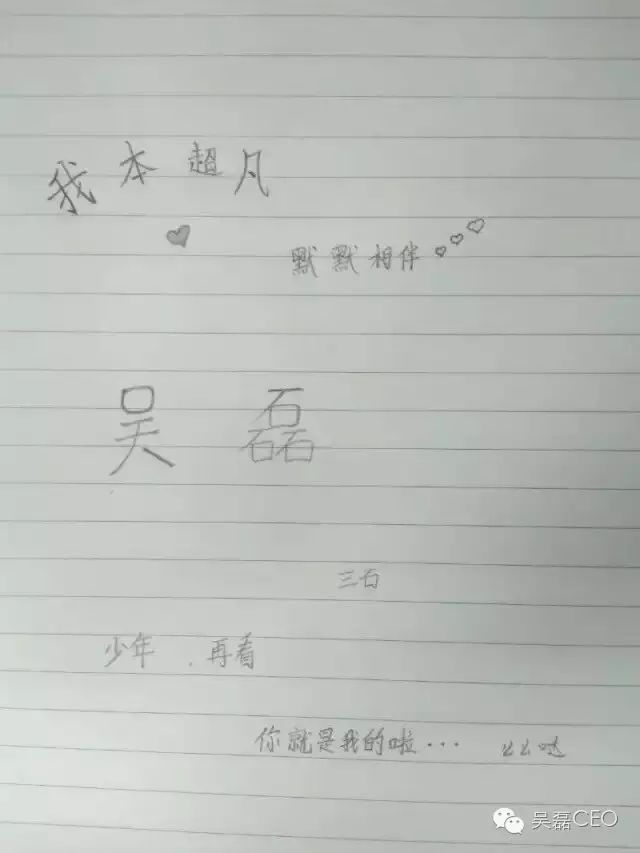 我本超凡
默默相伴
吴磊
三石
少年，再看
你就是我的啦... 么么哒
吴磊CEO